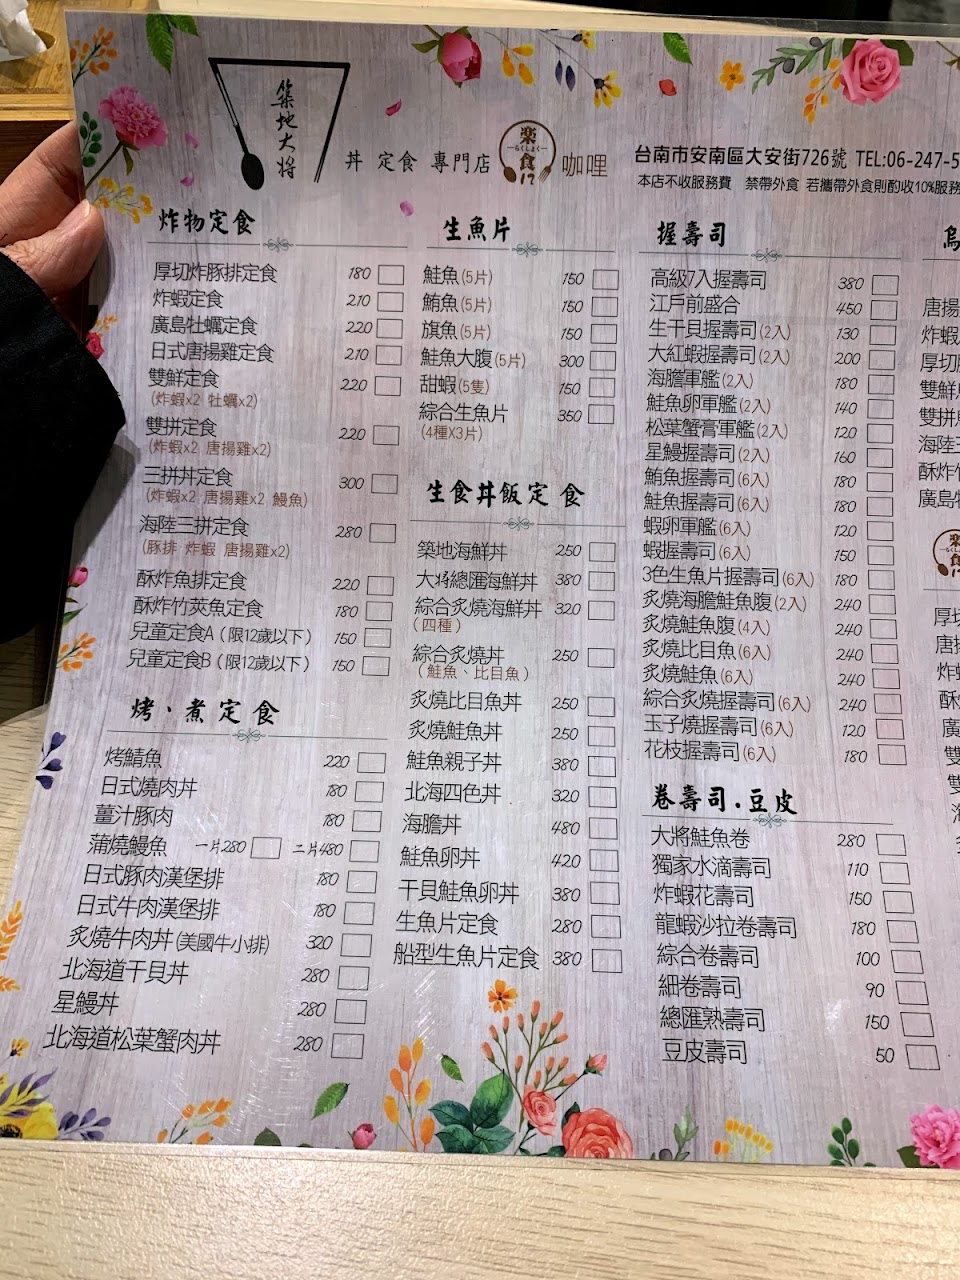 築地大将
丼 定食 專門店
楽食17
らくしょく
咖哩
台南市安南區大安街726號 TEL:06-247-5
本店不收服務費 禁帶外食 若攜帶外食則酌收10%服務
炸物定食
厚切炸豚排定食 180
炸蝦定食 210
廣島牡蠣定食 220
日式唐揚雞定食 210
雙鮮定食 220
(炸蝦x2 牡蠣x2)
雙拼定食 220
(炸蝦x2 唐揚雞x2)
三拼丼定食 300
(炸蝦x2 唐揚雞x2 鰻魚)
海陸三拼定食 280
(豚排 炸蝦 唐揚雞x2)
酥炸魚排定食 220
酥炸竹莢魚定食 180
兒童定食A（限12歲以下） 150
兒童定食B（限12歲以下） 150
烤、煮定食
烤鯖魚 220
日式燒肉丼 180
薑汁豚肉 180
蒲燒鰻魚 一片280 二片480
日式豚肉漢堡排 180
日式牛肉漢堡排 180
炙燒牛肉丼(美國牛小排) 320
北海道干貝丼 280
星鰻丼 280
北海道松葉蟹肉丼 280
生魚片
鮭魚(5片) 150
鮪魚(5片) 150
旗魚(5片) 150
鮭魚大腹(5片) 300
甜蝦(5隻) 150
綜合生魚片 350
(4種X3片)
生食丼飯定食
築地海鮮丼 250
大将總匯海鮮丼 380
綜合炙燒海鮮丼 320
（四種）
綜合炙燒丼 250
（鮭魚、比目魚）
炙燒比目魚丼 250
炙燒鮭魚丼 250
鮭魚親子丼 380
北海四色丼 320
海膽丼 480
鮭魚卵丼 420
干貝鮭魚卵丼 380
生魚片定食 280
船型生魚片定食 380
握壽司
高級7入握壽司 380
江戶前盛合 450
生干貝握壽司(2入) 130
大紅蝦握壽司(2入) 200
海膽軍艦(2入) 180
鮭魚卵軍艦(2入) 140
松葉蟹膏軍艦(2入) 120
星鰻握壽司(2入) 160
鮪魚握壽司(6入) 180
鮭魚握壽司(6入) 180
蝦卵軍艦(6入) 120
蝦握壽司(6入) 150
3色生魚片握壽司(6入) 180
炙燒海膽鮭魚腹(2入) 240
炙燒鮭魚腹(4入) 240
炙燒比目魚(6入) 240
炙燒鮭魚(6入) 240
綜合炙燒握壽司(6入) 240
玉子燒握壽司(6入) 120
花枝握壽司(6入) 180
卷壽司.豆皮
大將鮭魚卷 280
獨家水滴壽司 110
炸蝦花壽司 150
龍蝦沙拉卷壽司 180
綜合卷壽司 100
細卷壽司 90
總匯熟壽司 150
豆皮壽司 50
烏
唐揚
炸蝦
厚切
雙鮮
雙拼
海陸三
酥炸竹
廣島牡
楽食17
厚切
唐揚
炸蝦
酥炸
廣
雙
雙
海